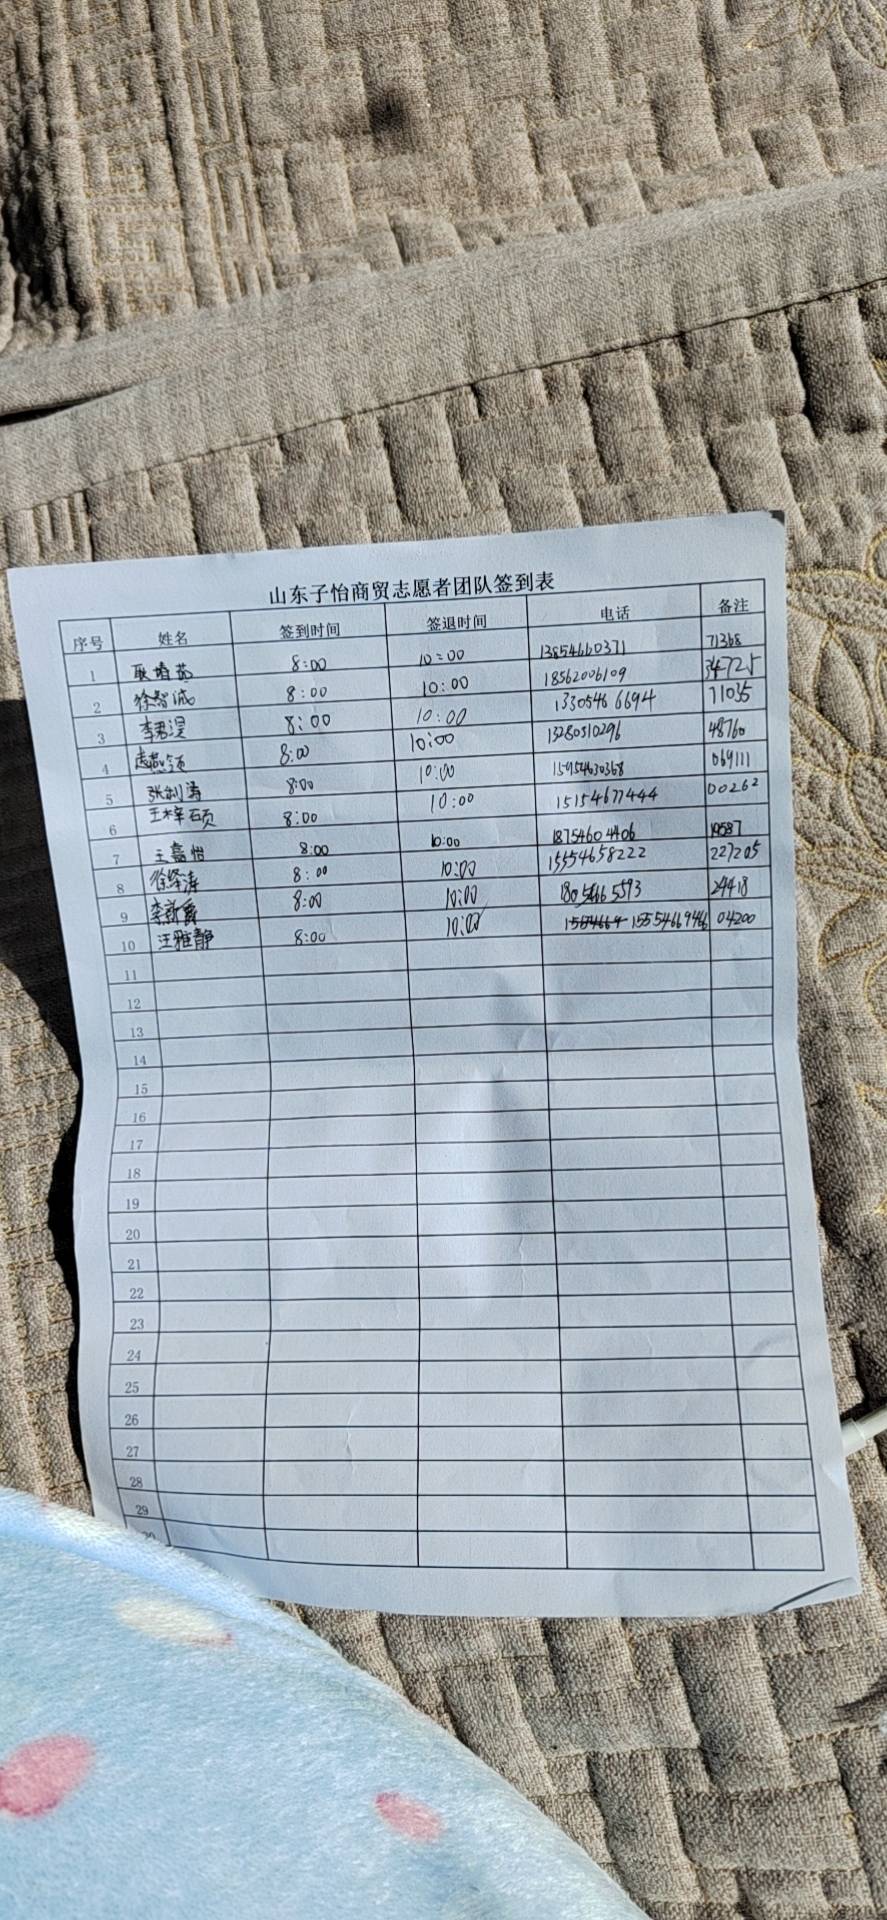 山东子怡商贸志愿者团队签到表
序号 姓名 签到时间 签退时间 电话 备注
1 8:00 10:00 13854660371 71368
2 徐智诚 8:00 10:00 18562006109 34725
3 李君浸 8:00 10:00 13305466694 71035
4 8:00 10:00 13280510296 48760
5 张钊涛 8:00 10:00 15954630368 069111
6 王梓硕 8:00 10:00 15154677444 00262
7 王嘉怡 8:00 10:00 18754604406 19587
8 徐绎涛 8:00 10:00 15554658222 227205
9 李 8:00 10:00 18054665593 24418
10 汪雅静 8:00 10:00 15554669466 04200
11
12
13
14
15
16
17
18
19
20
21
22
23
24
25
26
27
28
29